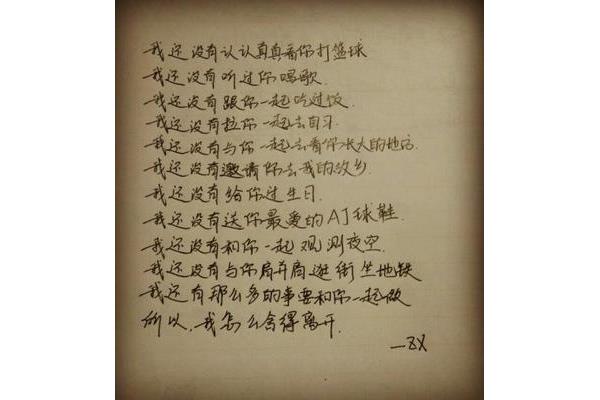 我还没有认认真真看你打篮球
我还没有听过你唱歌.
我还没有跟你一起吃过饭.
我还没有拉你一起去自习.
我还没有与你一起去看你长大的地方.
我还没有邀请你去我的故乡.
我还没有给你过生日.
我还没有送你最爱的AJ球鞋.
我还没有和你一起观测夜空.
我还没有与你肩并肩逛街坐地铁
我还有那么多的事要和你一起做
所以.我怎么舍得离开.
—ZX